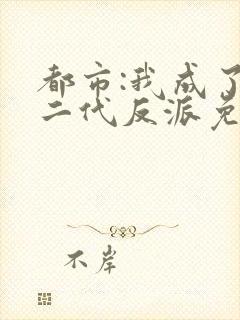 都市:我成了
二代反派免
不岸